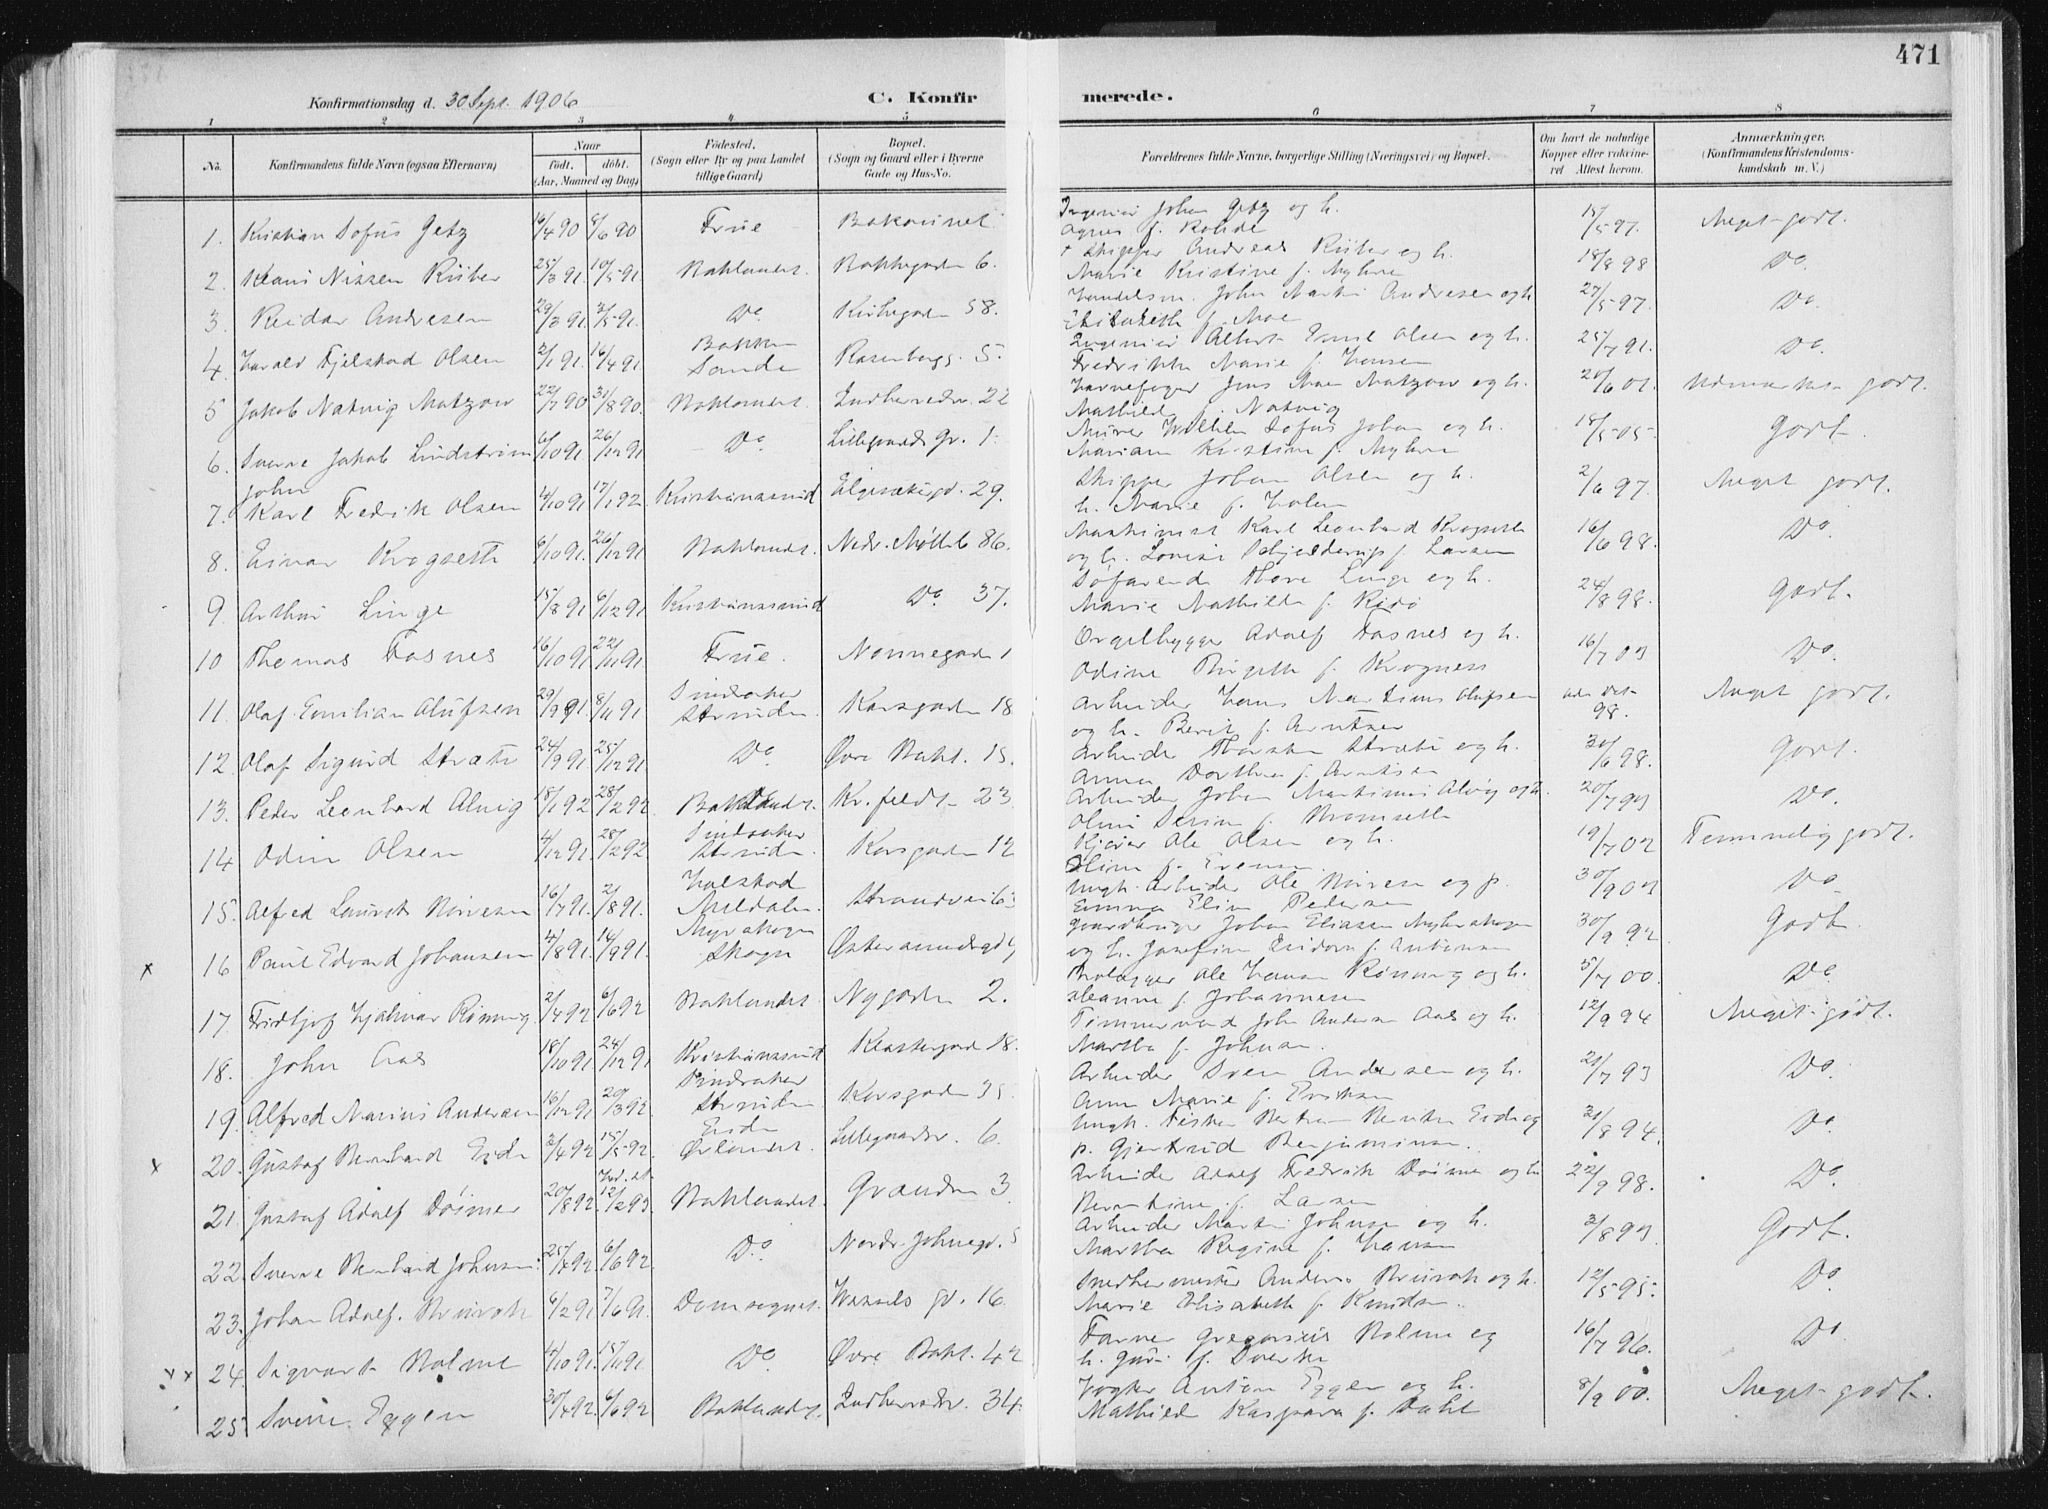 471
Konfirmationsdag d. 30 Sept. 1906
C. Konfirmerede.
1 2 3 4 5 6 7 8
No. Konfirmandens fulde Navn (ogsaa Efternavn) Naar født. døbt. (Aar, Maaned og Dag) Fødested. (Sogn eller By og paa Landet tillige Gaard) Bopæl. (Sogn og Gaard eller i Byerne Gade og Hus-No. Forældrenes fulde Navne, borgerlige Stilling (Næringsvei) og Bopæl. Om havt de naturlige Kopper eller vakcineret Attest herom. Anmærkninger. (Konfirmandens Kristendomskundskab m. V.)
1. Kristian Sofus Getz 16/4 90 8/6 90 Frue Bakaunet Ingeniør Johan Getz og h. Agnes f. Rohde 15/5 97. Meget godt.
2. Klaus Nissen Rüber 25/3 91. 10/5 91 Baklandet. Bakkegaden 6. † Skipper Andreas Rüber og h. Marie Kristine f. Myhre 18/8 98 Do.
3. Reidar Andresen 29/3 91. 3/5 91. Do. Kirkegaden 58. Handelsm. John Martin Andresen og h. Elisabeth f. Moe 27/5 97. Do.
4. Harald Fjelstad Olsen 2/1 91. 16/4 91 Bakken Sande Rosenborgg. 5. Ingeniør Albert Emil Olsen og h. Fredrikke Marie f. Hansen 25/7 91. Do.
5 Jakob Natvig Matzow 22/7 90 31/8 90. Baklandet. Indherredsv. 22 Havnefoget Jens Moe Matzow og h. Mathilde f. Natvig 20/6 01. Udmærket godt.
6. Sverre Jakob Lindstrøm 6/10 91 26/12 91 Do. Lillegaards gr. 1. Murer Wilhelm Sofus Johan og h. Mariam Kristine f. Myhre 18/5 05. Godt.
7. John Karl Fredrik Olsen 4/10 91. 17/1 92 Kristianssund Elgesætergd. 29. Skipper Johan Olsen og h. h. Marie f. Holen 2/6 97. Meget godt.
8. Einar Krogseth 6/10 91. 26/12 91 Baklandet. Nedr. Møllebg 86. Maskinist Karl Leonhard Krogseth og h. Lovise Schjelderup f. Larsen 16/6 98. Do
9 Arthur Linge 15/8 91 6/12 91 Kristianssund Do. 37. Søfarende Thore Linge og h. Marie Mathilde f. 24/8 98. Godt.
10 Thomas Fosnes 16/10 91 22/11 91. Frue. Nonnegaden 1 Orgelbygger Adolf Fosnes og h. Odine Birgith f. Krogness 16/7 03 Do.
11. Olaf Emilian Olufsen 29/9 91. 8/11 91 Sindsaker Strinden. Korsgaden 18 Arbeider Hans Martinus Olufsen og h. Berit f. Arntsen 98. Meget godt.
12. Olaf Sigurd Stræte 24/9 91 25/12 91. Do. Øvre Bakl. 15. Arbeider Thorsten Stræte og h. Anna Dorthea f. Arntsen 30/6 98. Godt.
13. Peder Leonhard Alvig 18/1 92 28/2 92 Baklandet. Kr. feldt 23 Arbeider Johan Martinus Alvig og h. Oline Serine f. Bromseth 20/7 93 Do.
14 Odin Olsen 4/12 91. 28/2 92 Sindsaker Strinden. Korsgaden 12 Kjører Ole Olsen og h. Eline f. Evensen 19/7 02 Temmelig godt.
15. Alfred Laurits 16/7 91. 2/8 91. Holstad Meldalen. Strandvei 63 Ungk. Arbeider Ole og p. Emma Elise Pedersen 30/9 03 Do
x 16 Paul Edvard Johansen 4/8 91. 14/9 91. Myrskogn Skogn Østersundsgd 9 Gaardbruger Johan Eliasen Myhrskogn og h. Josefine Isidora f. Antonsen 30/9 92 Godt.
17. Fridtjof Hjalmar Rønning 2/4 92 6/6 92 Baklandet. Nygaden 2. Ole Hansen Rønning og h. Jeanne f. Johannesen 5/7 00. Do.
18. John Aas 18/10 91 24/12 91 Kristianssund Klostergaden 18. Tømmermand John Andersen Aas og h. Martha f. Johnsen. 12/9 94 Meget godt.
19. Alfred Marius Andersen 16/12 91 20/3 92 Sindsaker Strinden Korsgaden 35 Arbeider Sven Andersen og h. Anne Marie f. Eriksen 21/7 93 Do.
x 20. Gustaf Bernhard Eide 3/4 92 15/5 92 Eide Ørlandet. Lillegaardsv. 6. Ungk. Fisker Eide og p. Gjertrud Benjaminsen. 31/8 94. Do.
21. Gustaf Adolf Doimer 20/8 92. 12/2 93 Baklandet. Granden 3. Arbeider Adolf Fredrik Doimer og h. Berntine f. Larsen 22/9 98. Do.
22. Sverre Bernhard Johnsen. 25/4 92. 6/6 92 Do. Nordr. Johnsgd. 5 Arbeider Martin Johnsen og h. Martha Regine f. Hansen 3/8 93. Godt.
23. Johan Adolf Brusok 6/2 91. 7/6 91. Domsognet. Wessels gd. 16. Snedkermester Anders Brusok og h. Marie Elisabeth f. Knudsen. 12/5 95. Do.
x x 24. Sigvart Holme 4/10 91. 15/11 91 Do. Øvre Bakl. 42 Farver Gregorius Holme og h. Guri f. 16/7 96. Do
25. Svein Eggen 30/4 92. 6/6 92 Baklandet. Indherredsv. 34. Vogter Anton Eggen og h. Mathilde Kaspara f. Dahl 8/9 00. Meget godt.